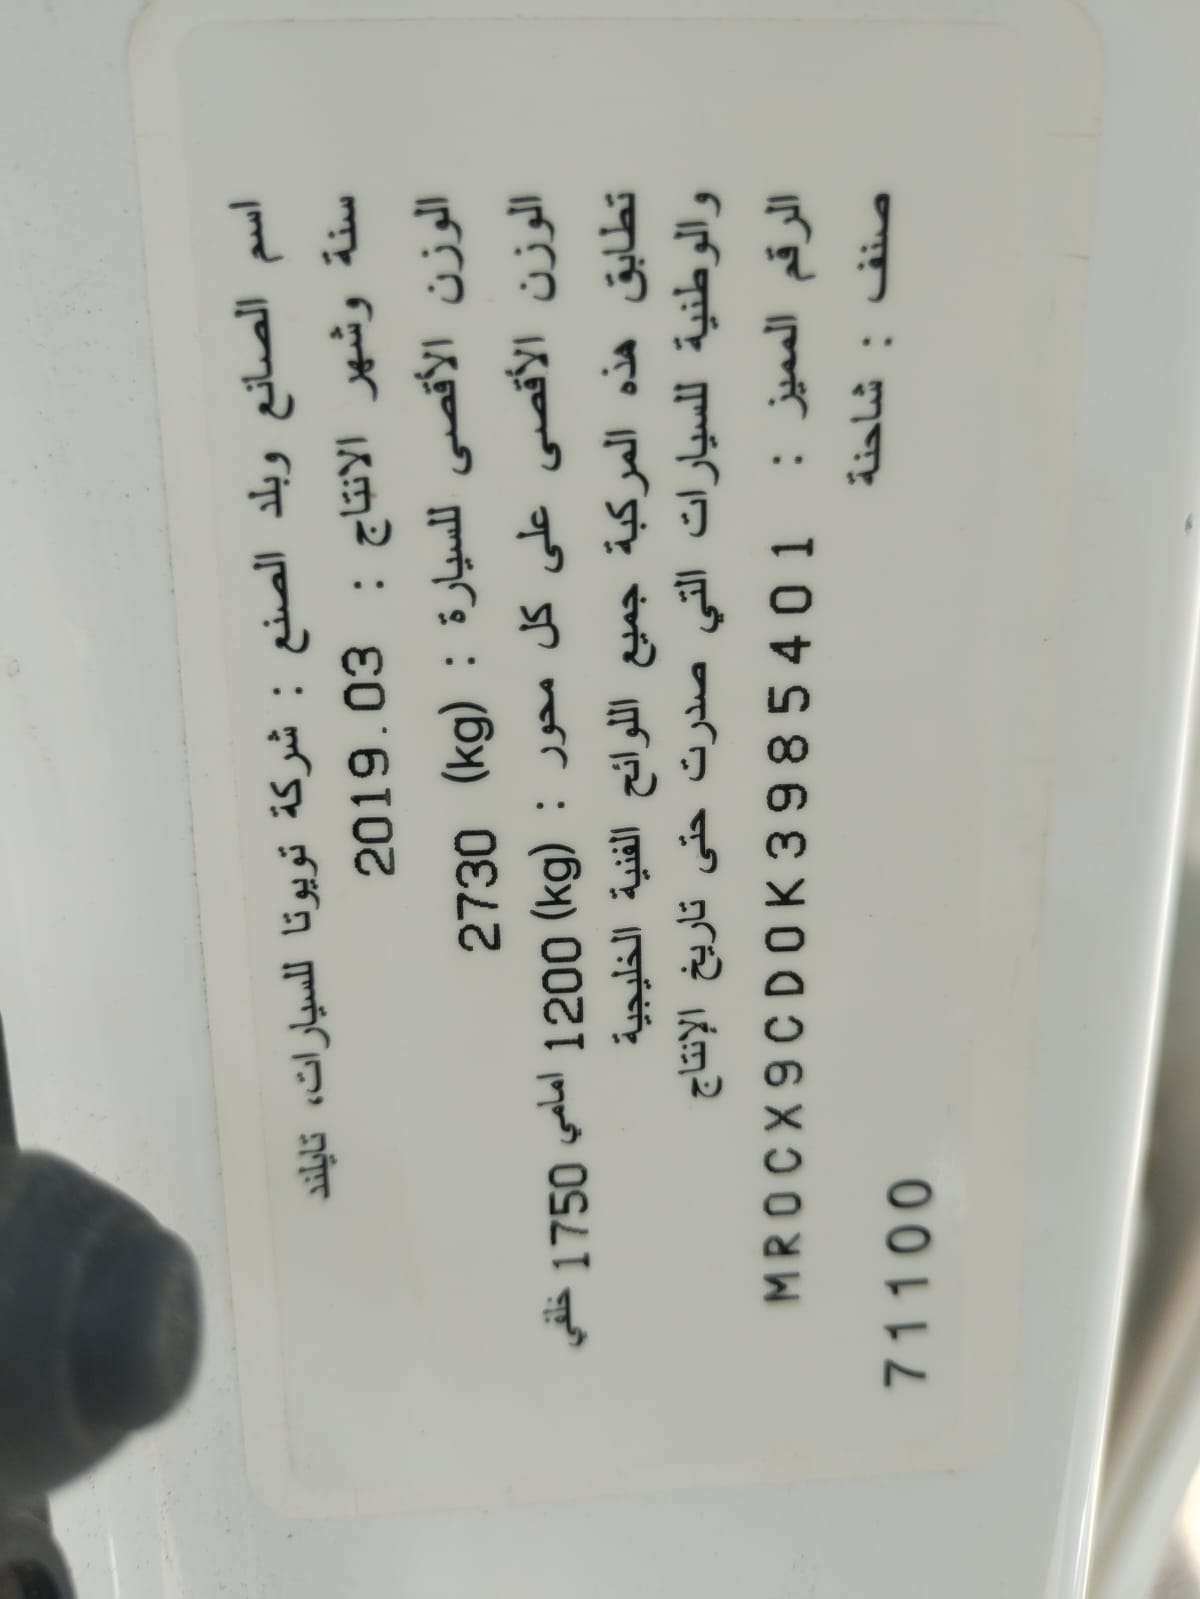 اسم الصانع وبلد الصنع : شركة تويوتا للسيارات، تايلند
سنة وشهر الانتاج : 2019.03
الوزن الأقصى للسيارة : (kg) 2730
الوزن الأقصى على كل محور : (kg) 1200 امامي 1750 خلفي
تطابق هذه المركبة جميع اللوائح الفنية الخليجية
والوطنية للسيارات التي صدرت حتى تاريخ الإنتاج
الرقم المميز : MR0CX9CD0K3985401
صنف : شاحنة
71100